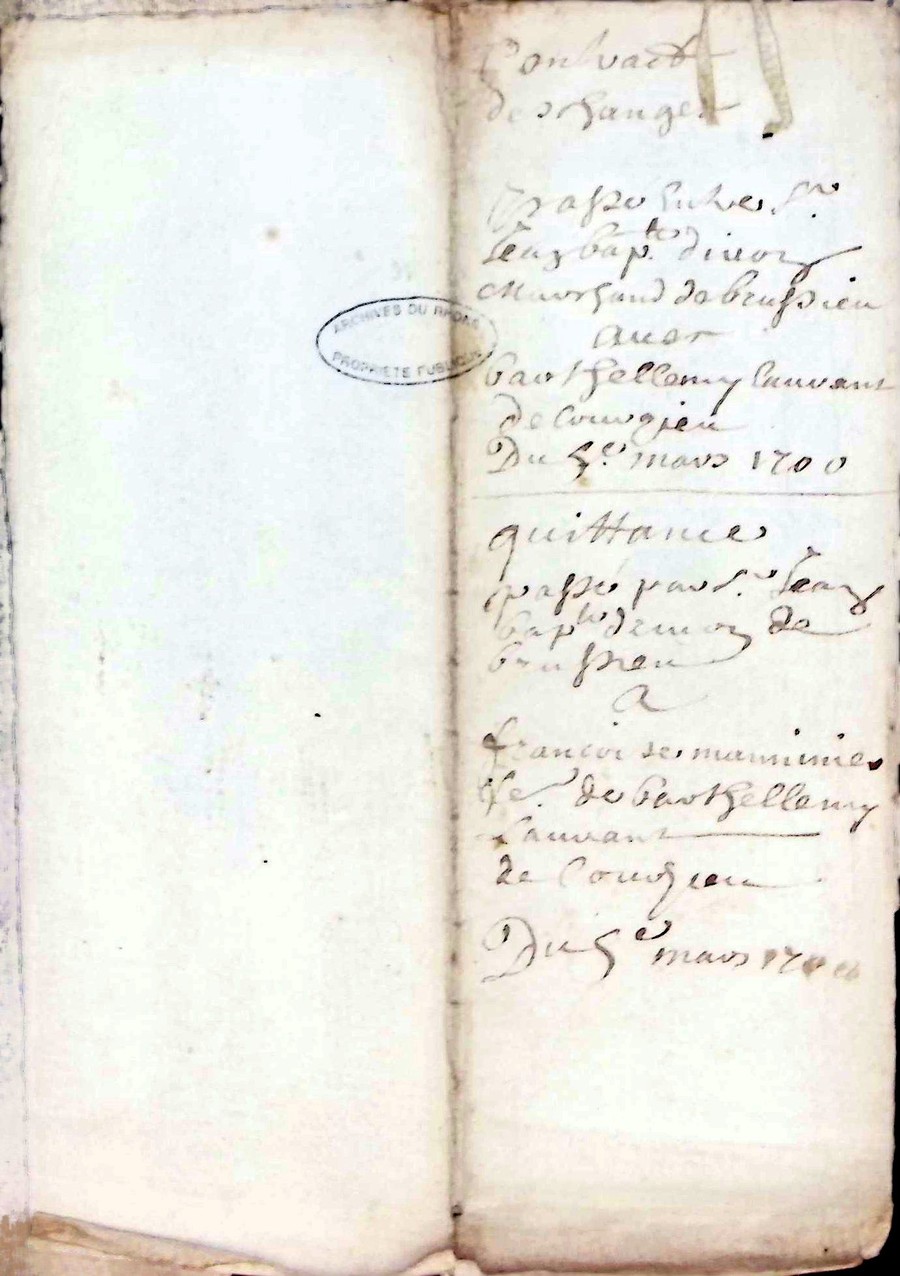 Contract
deschanges
passé Entre Sr
Jean bapte divory
Marchand de brussieu
avec
barthellemy Lauvant
de Courzieu
Du 5e mars 1700
quittance
passé par Sr Jean
bapte de
brussieu
A
francoise
fe de barthellemy
Lauvant
de Courzieu
Du 5e mars 1700
ARCHIVES DU RHONE
PROPRIETE PUBLIQUE